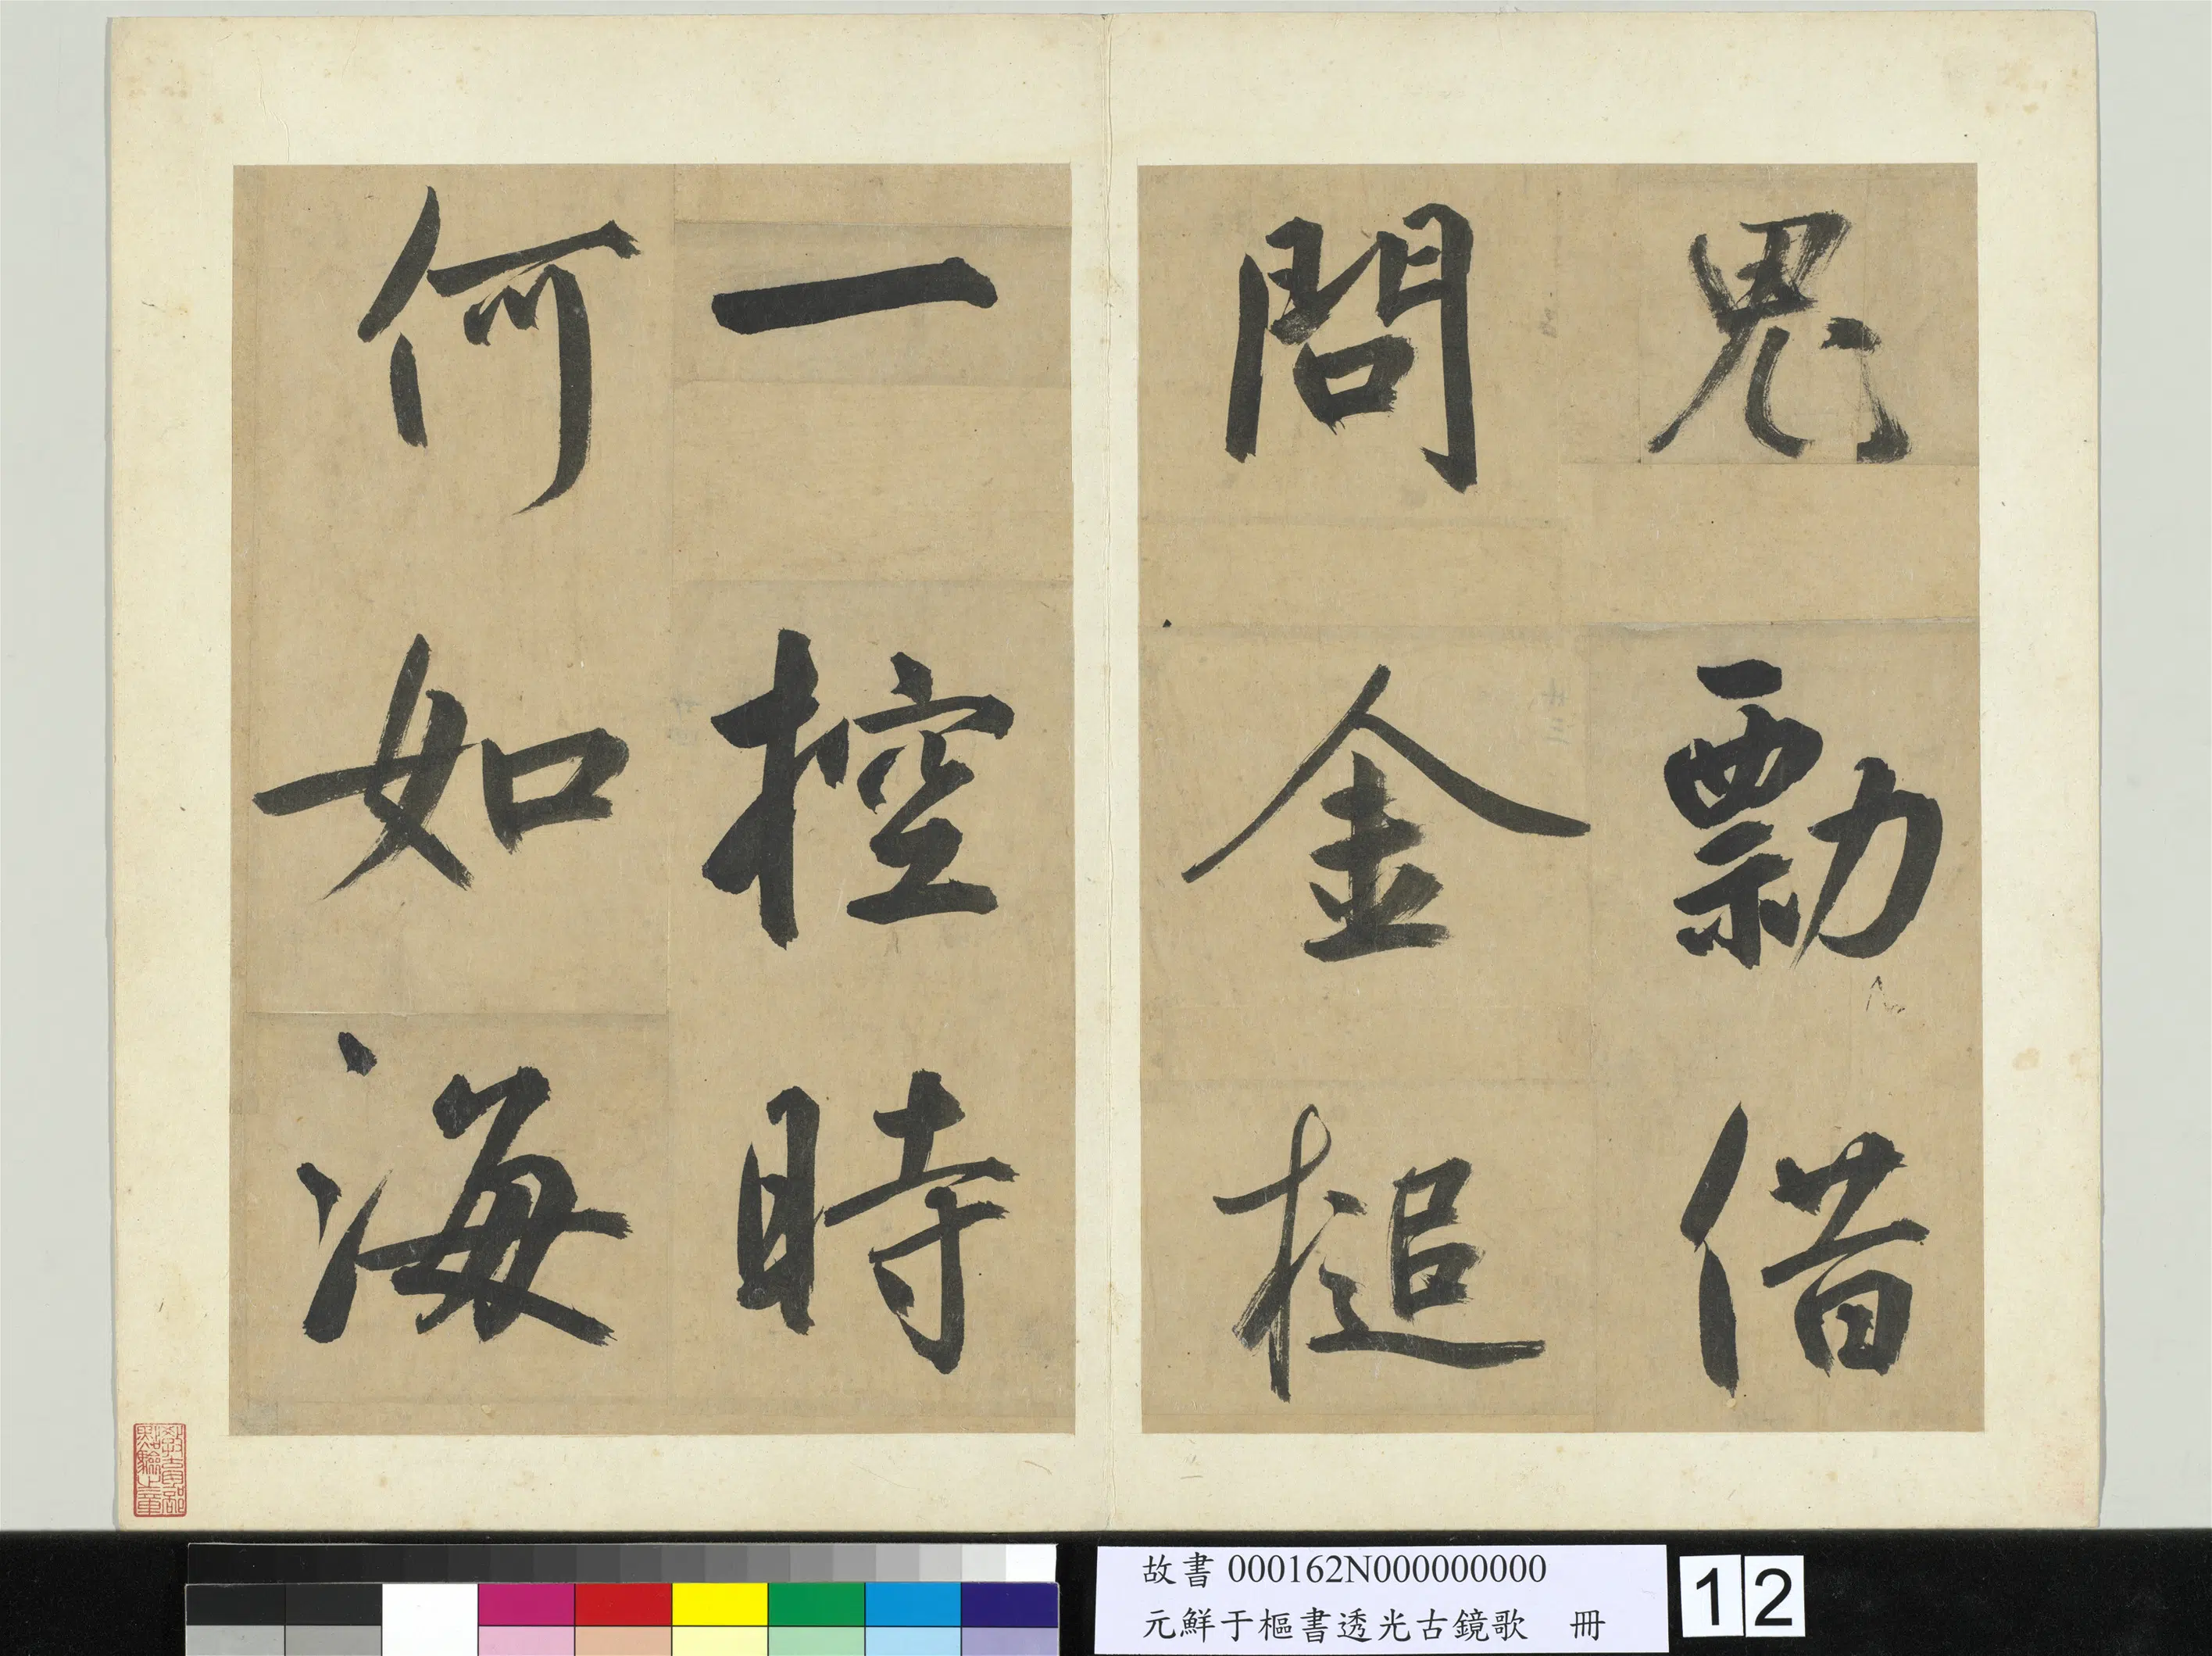 鬼勡借
問金槌
一控時
何如海
故書 000162N000000000
元鮮于樞書透光古鏡歌 冊
12